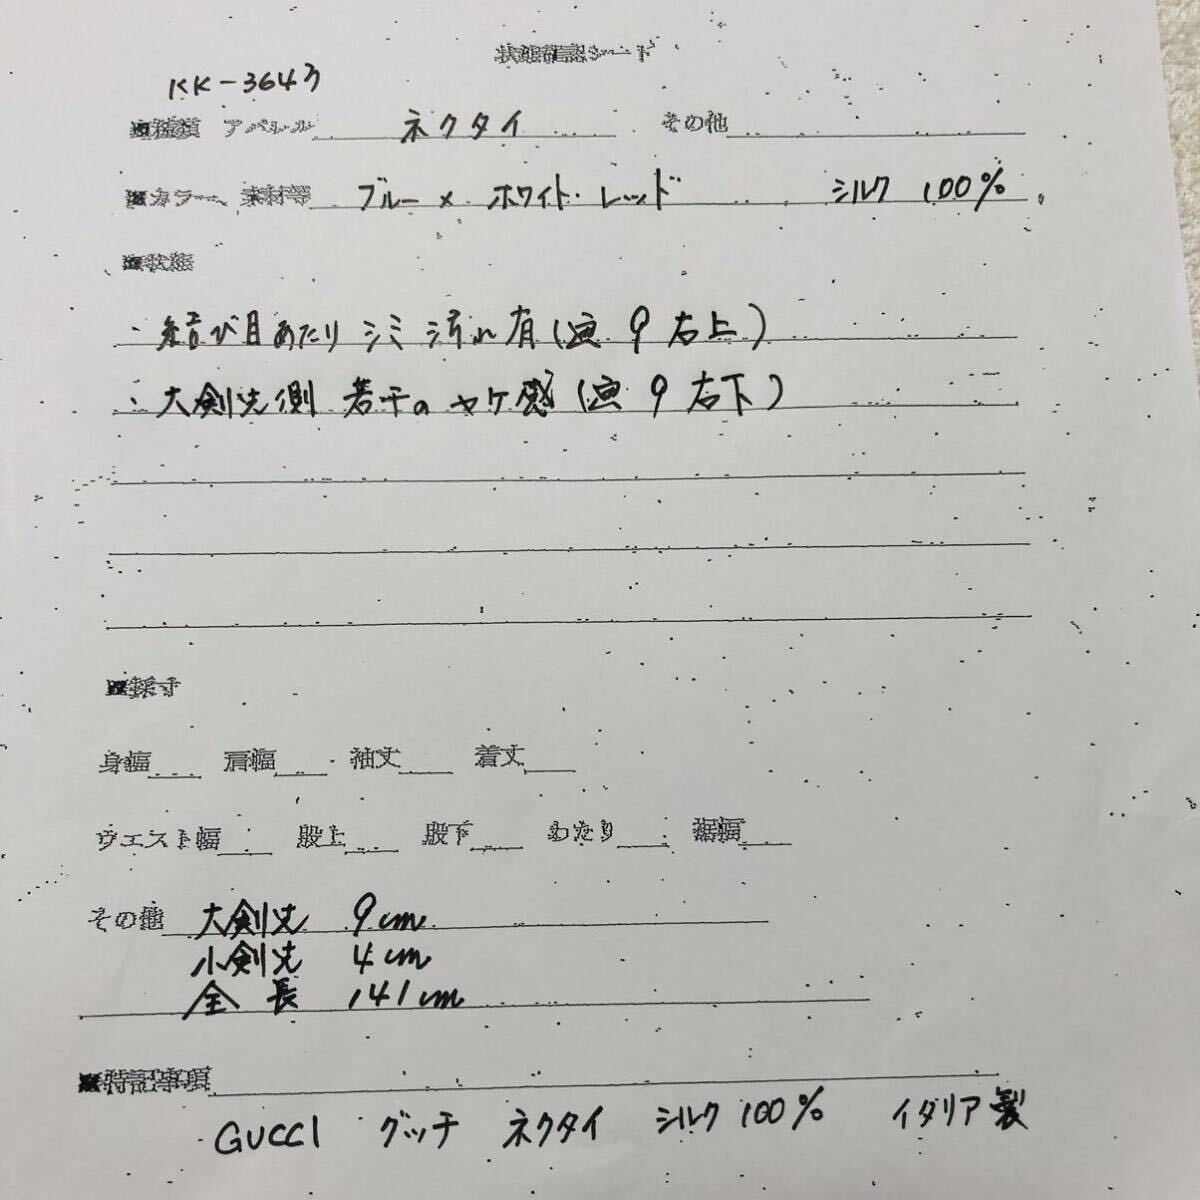 状態確認シート
KK-3643
■種類 アパレル ネクタイ その他
■カラー、素材等 ブルー×ホワイト・レッド シルク 100%
■状態
・結び目あたり シミ 汚れ有(画 9 右上)
・大剣先側 若干の ヤケ感(画 9 右下)
■採寸
身幅 肩幅 袖丈 着丈
ウエスト幅 股上 股下 わたり 裾幅
その他 大剣丈 9cm
小剣丈 4cm
全長 141cm
■特記事項
GUCCI グッチ ネクタイ シルク 100% イタリア製